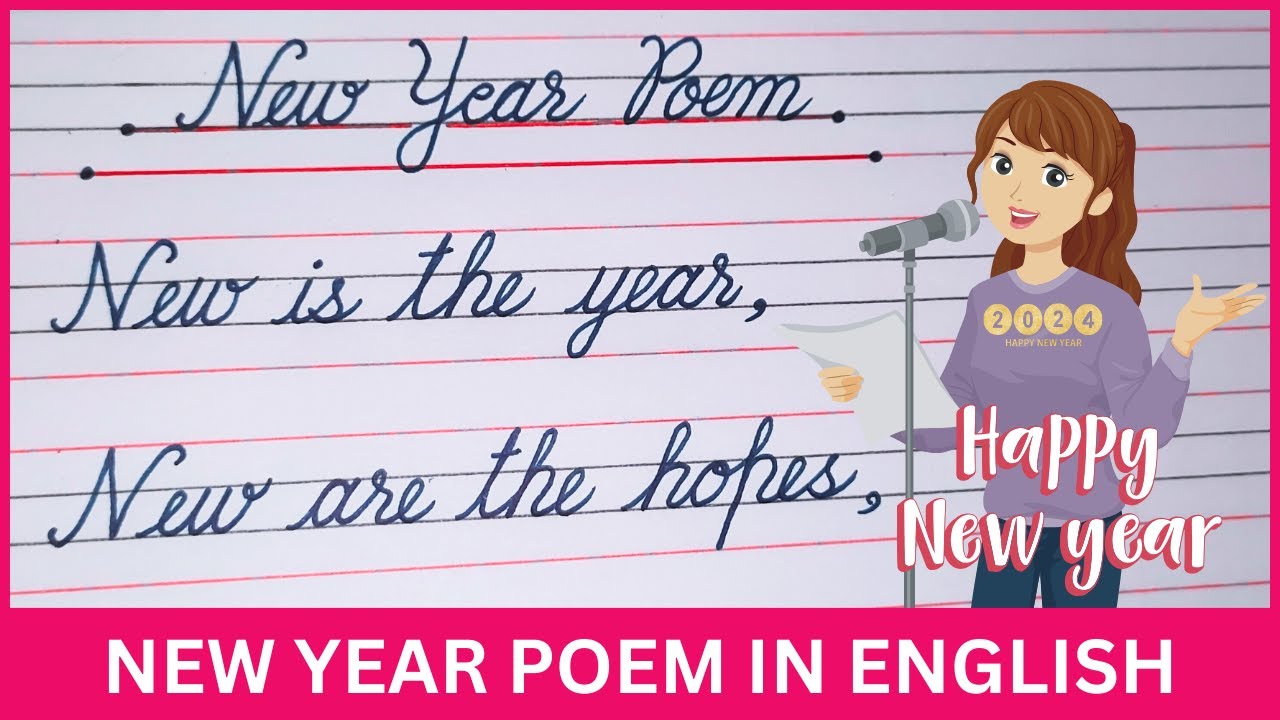 New Year Poem.
New is the year,
New are the hopes,
2024
HAPPY NEW YEAR
Happy
New year
NEW YEAR POEM IN ENGLISH